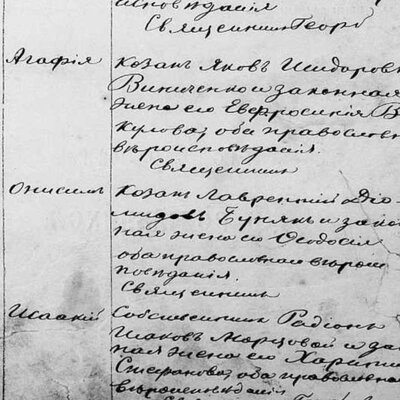 исповѣданія
Священникъ Георг
Агафія Козакъ Яковъ Исидоровъ
Винниченко и законная
жена его Евфросинія В
кулова, оба православн
вѣроисповѣданія.
Священникъ
Онисимъ Козакъ Лаврентій Діо-
мидовъ Бунякъ и закон
ная жена его Ѳеодосія
оба православнаго вѣроис
повѣданія.
Священникъ
Исаакій Собственникъ Радіонъ
Исаковъ и за
ная жена его Харит
Стефанова, оба православна
вѣроисповѣданія
Священникъ